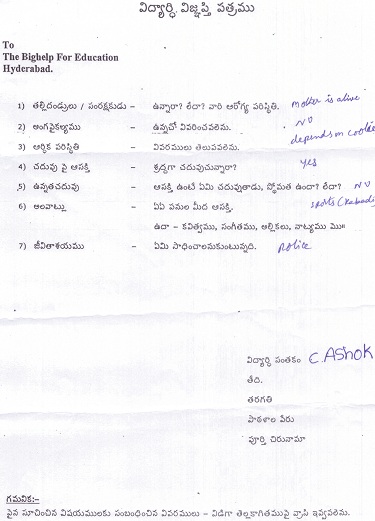 విద్యార్ధి విజ్ఞప్తి పత్రము
To
The Bighelp For Education
Hyderabad.
1) తల్లిదండ్రులు / సంరక్షకుడు – ఉన్నారా? లేదా? వారి ఆరోగ్య పరిస్థితి. Mother is alive
2) అంగవైకల్యము – ఉన్నచో వివరించవలెను. NO
3) ఆర్ధిక పరిస్థితి – వివరములు తెలుపవలెను. depends on coolie
4) చదువు పై ఆసక్తి – శ్రద్ధగా చదువుచున్నారా? yes
5) ఉన్నతచదువు – ఆసక్తి ఉంటే ఏమి చదువుతాడు, స్థోమత ఉందా? లేదా? NO
6) అలవాట్లు – ఏఏ పనుల మీద ఆసక్తి. sports (kabadi
ఉదా – కవిత్వము, సంగీతము, అల్లికలు, నాట్యము మొ॥
7) జీవితాశయము – ఏమి సాధించాలనుకుంటున్నది. police
విద్యార్ధి సంతకం C. AShok
తేది.
తరగతి
పాఠశాల పేరు
పూర్తి చిరునామా
గమనిక:-
పైన సూచించిన విషయములకు సంబంధించిన వివరములు – విడిగా తెల్లకాగితముపై వ్రాసి ఇవ్వవలెను.